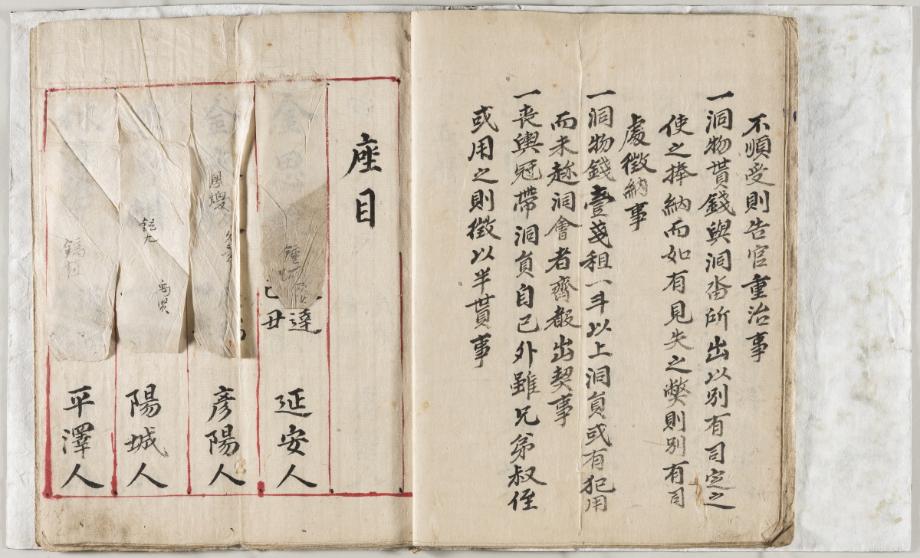 不順受則告官重治事
一洞物貰錢與洞畓所出以別有司定之
使之捧納而如有見失之弊則別有司
處徵納事
一洞物錢壹戔租一斗以上洞員或有犯用
而未趂洞會者齊報出契事
一喪輿冠帶洞員自己外雖兄弟叔侄
或用之則徵以半貰事
座目
金
達
丑
延安人
金
彦陽人
陽城人
平澤人